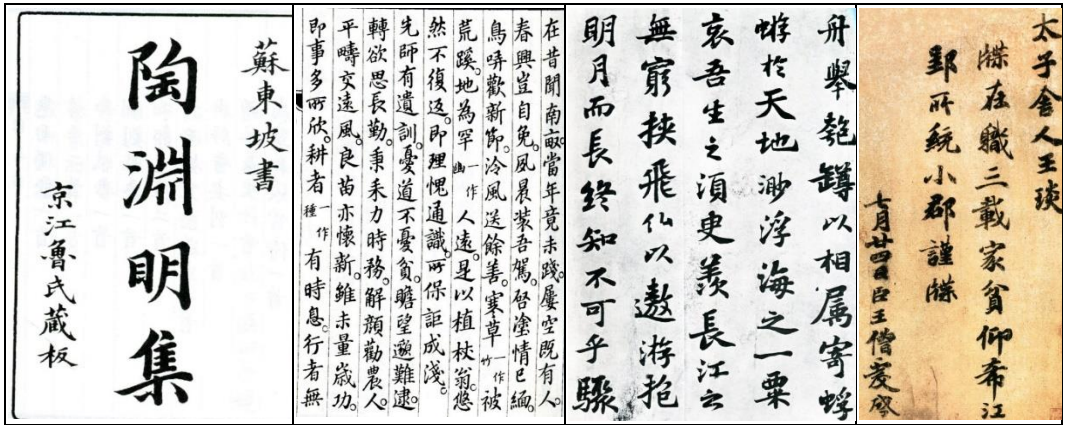 蘇東坡書
陶淵明集
京江魯氏藏板
在昔聞南畝。當年竟未踐。屢空既有人。
春興豈自免。夙晨裝吾駕。啓塗情已緬。
鳥哢歡新節。泠風送餘善。寒草一作竹被
荒蹊。地為罕一作幽人遠。是以植杖翁。悠
然不復返。即理愧通識。所保詎成淺。
先師有遺訓。憂道不憂貧。瞻望邈難逮。
轉欲思長勤。秉耒力時務。解顏勸農人。
平疇交遠風。良苗亦懷新。雖未量歲功。
即事多所欣。耕者一作種有時息。行者無
舟舉匏罇以相属寄蜉
蝣於天地渺浮海之一粟
哀吾生之須臾羨長江之
無窮挾飛仙以遨游抱
明月而長終知不可乎驟
太子舍人王琰
牒在職三載家貧仰希江
郢所統小郡謹牒
七月廿四日臣王僧虔啓